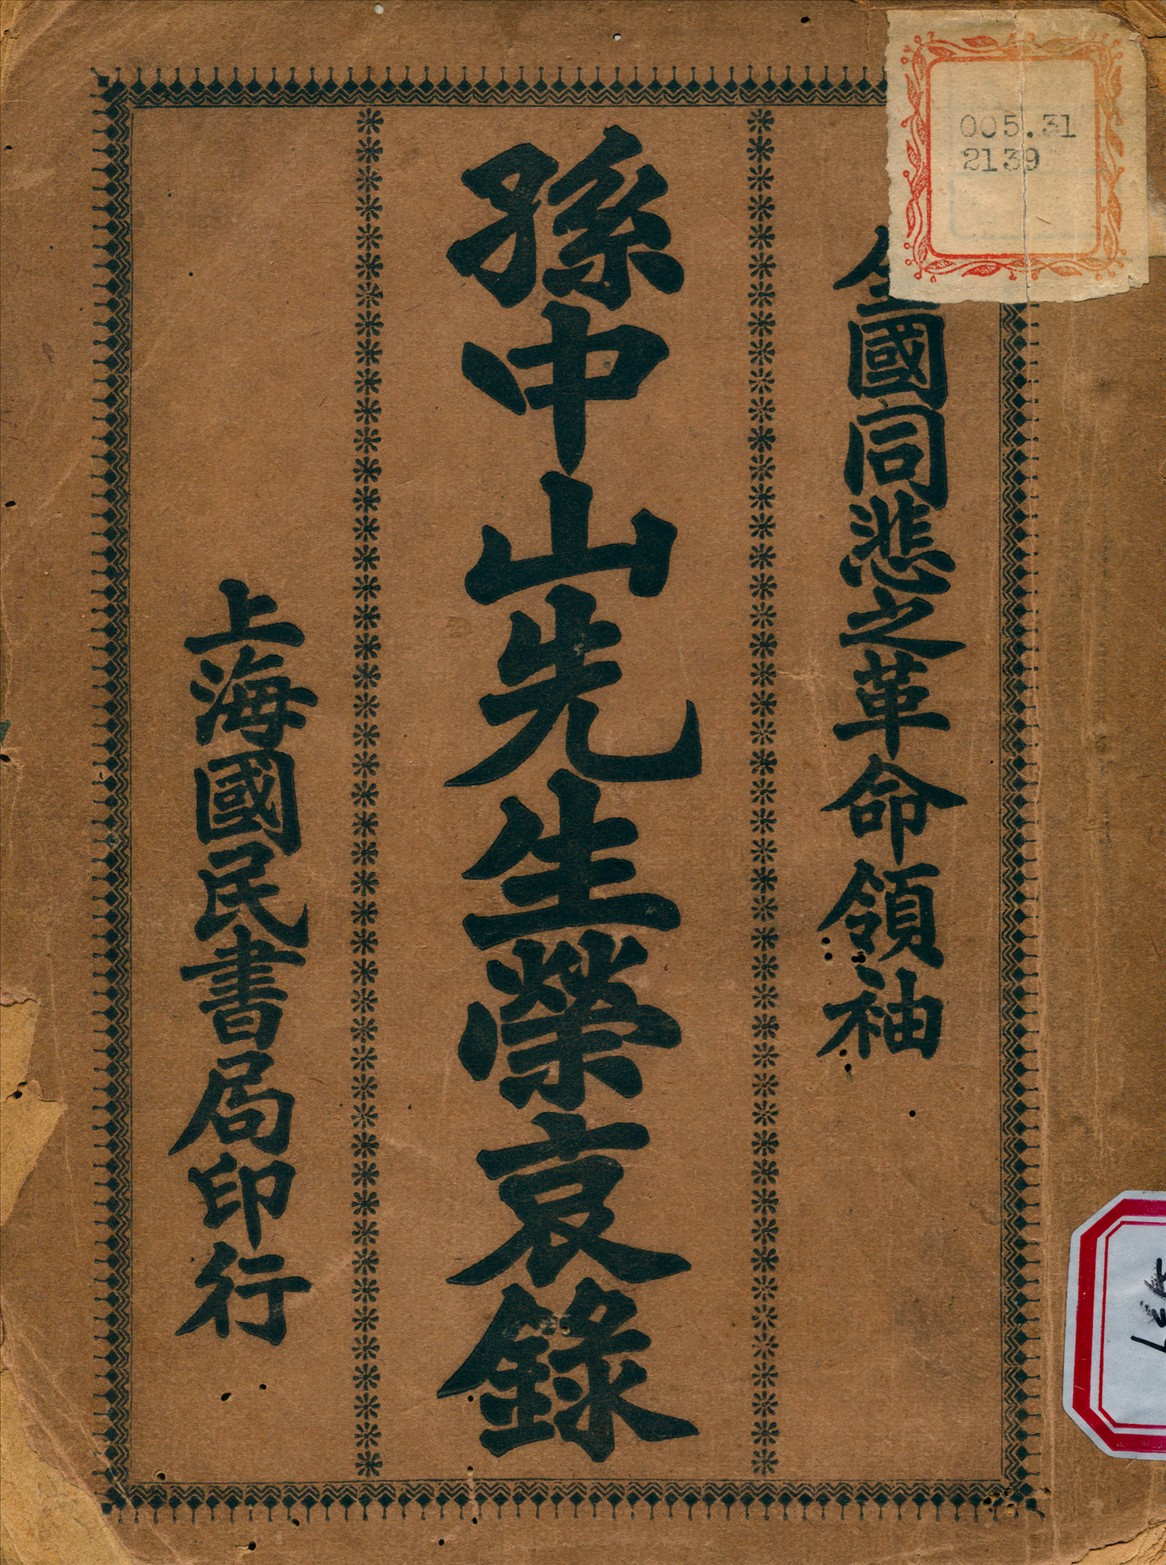 全國同悲之革命領袖
孫中山先生榮哀錄
上海國民書局印行
005.31
2139